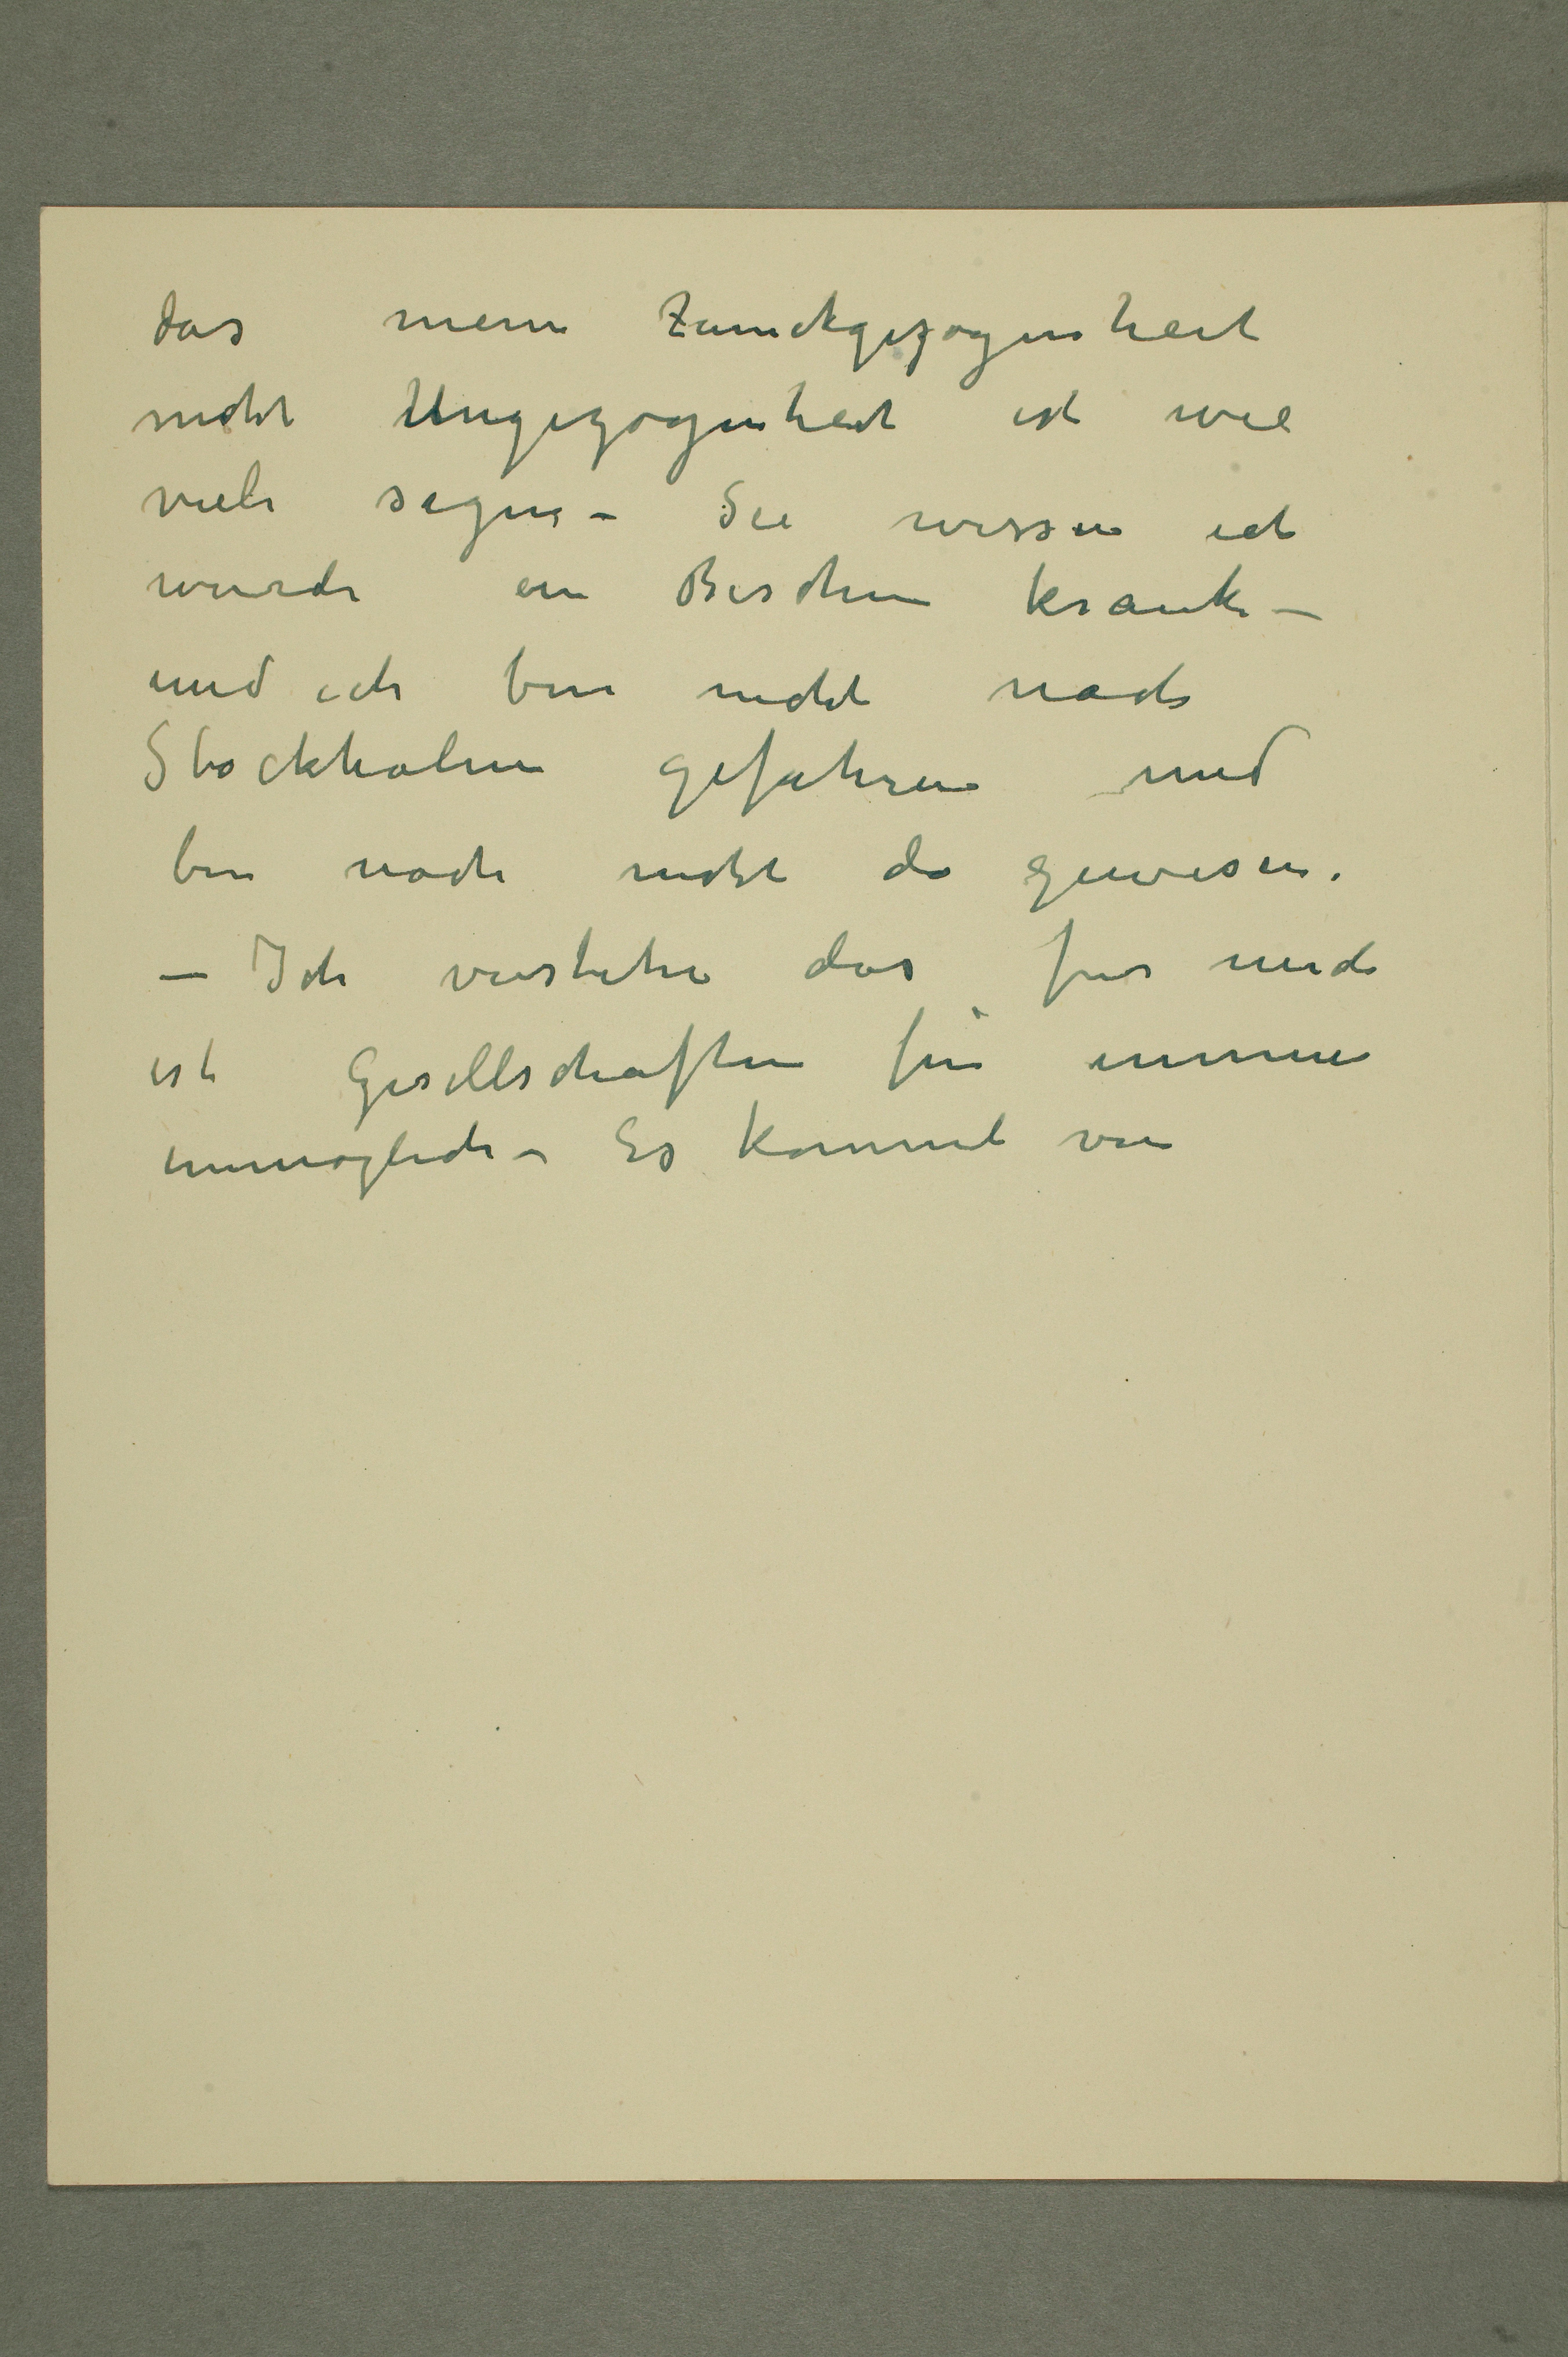 das meine Zurückgezogenheit
nicht Ungezogenheit ist wie
viele sagen – Sie wissen ich
wurde ein Bischen krank –
und ich bin nicht nach
Stockholm gefahren und
bin noch nicht da gewesen.
– Ich verstehe das fur mich
ist Gesellschaften für immer
unmöglich – Es kommt von